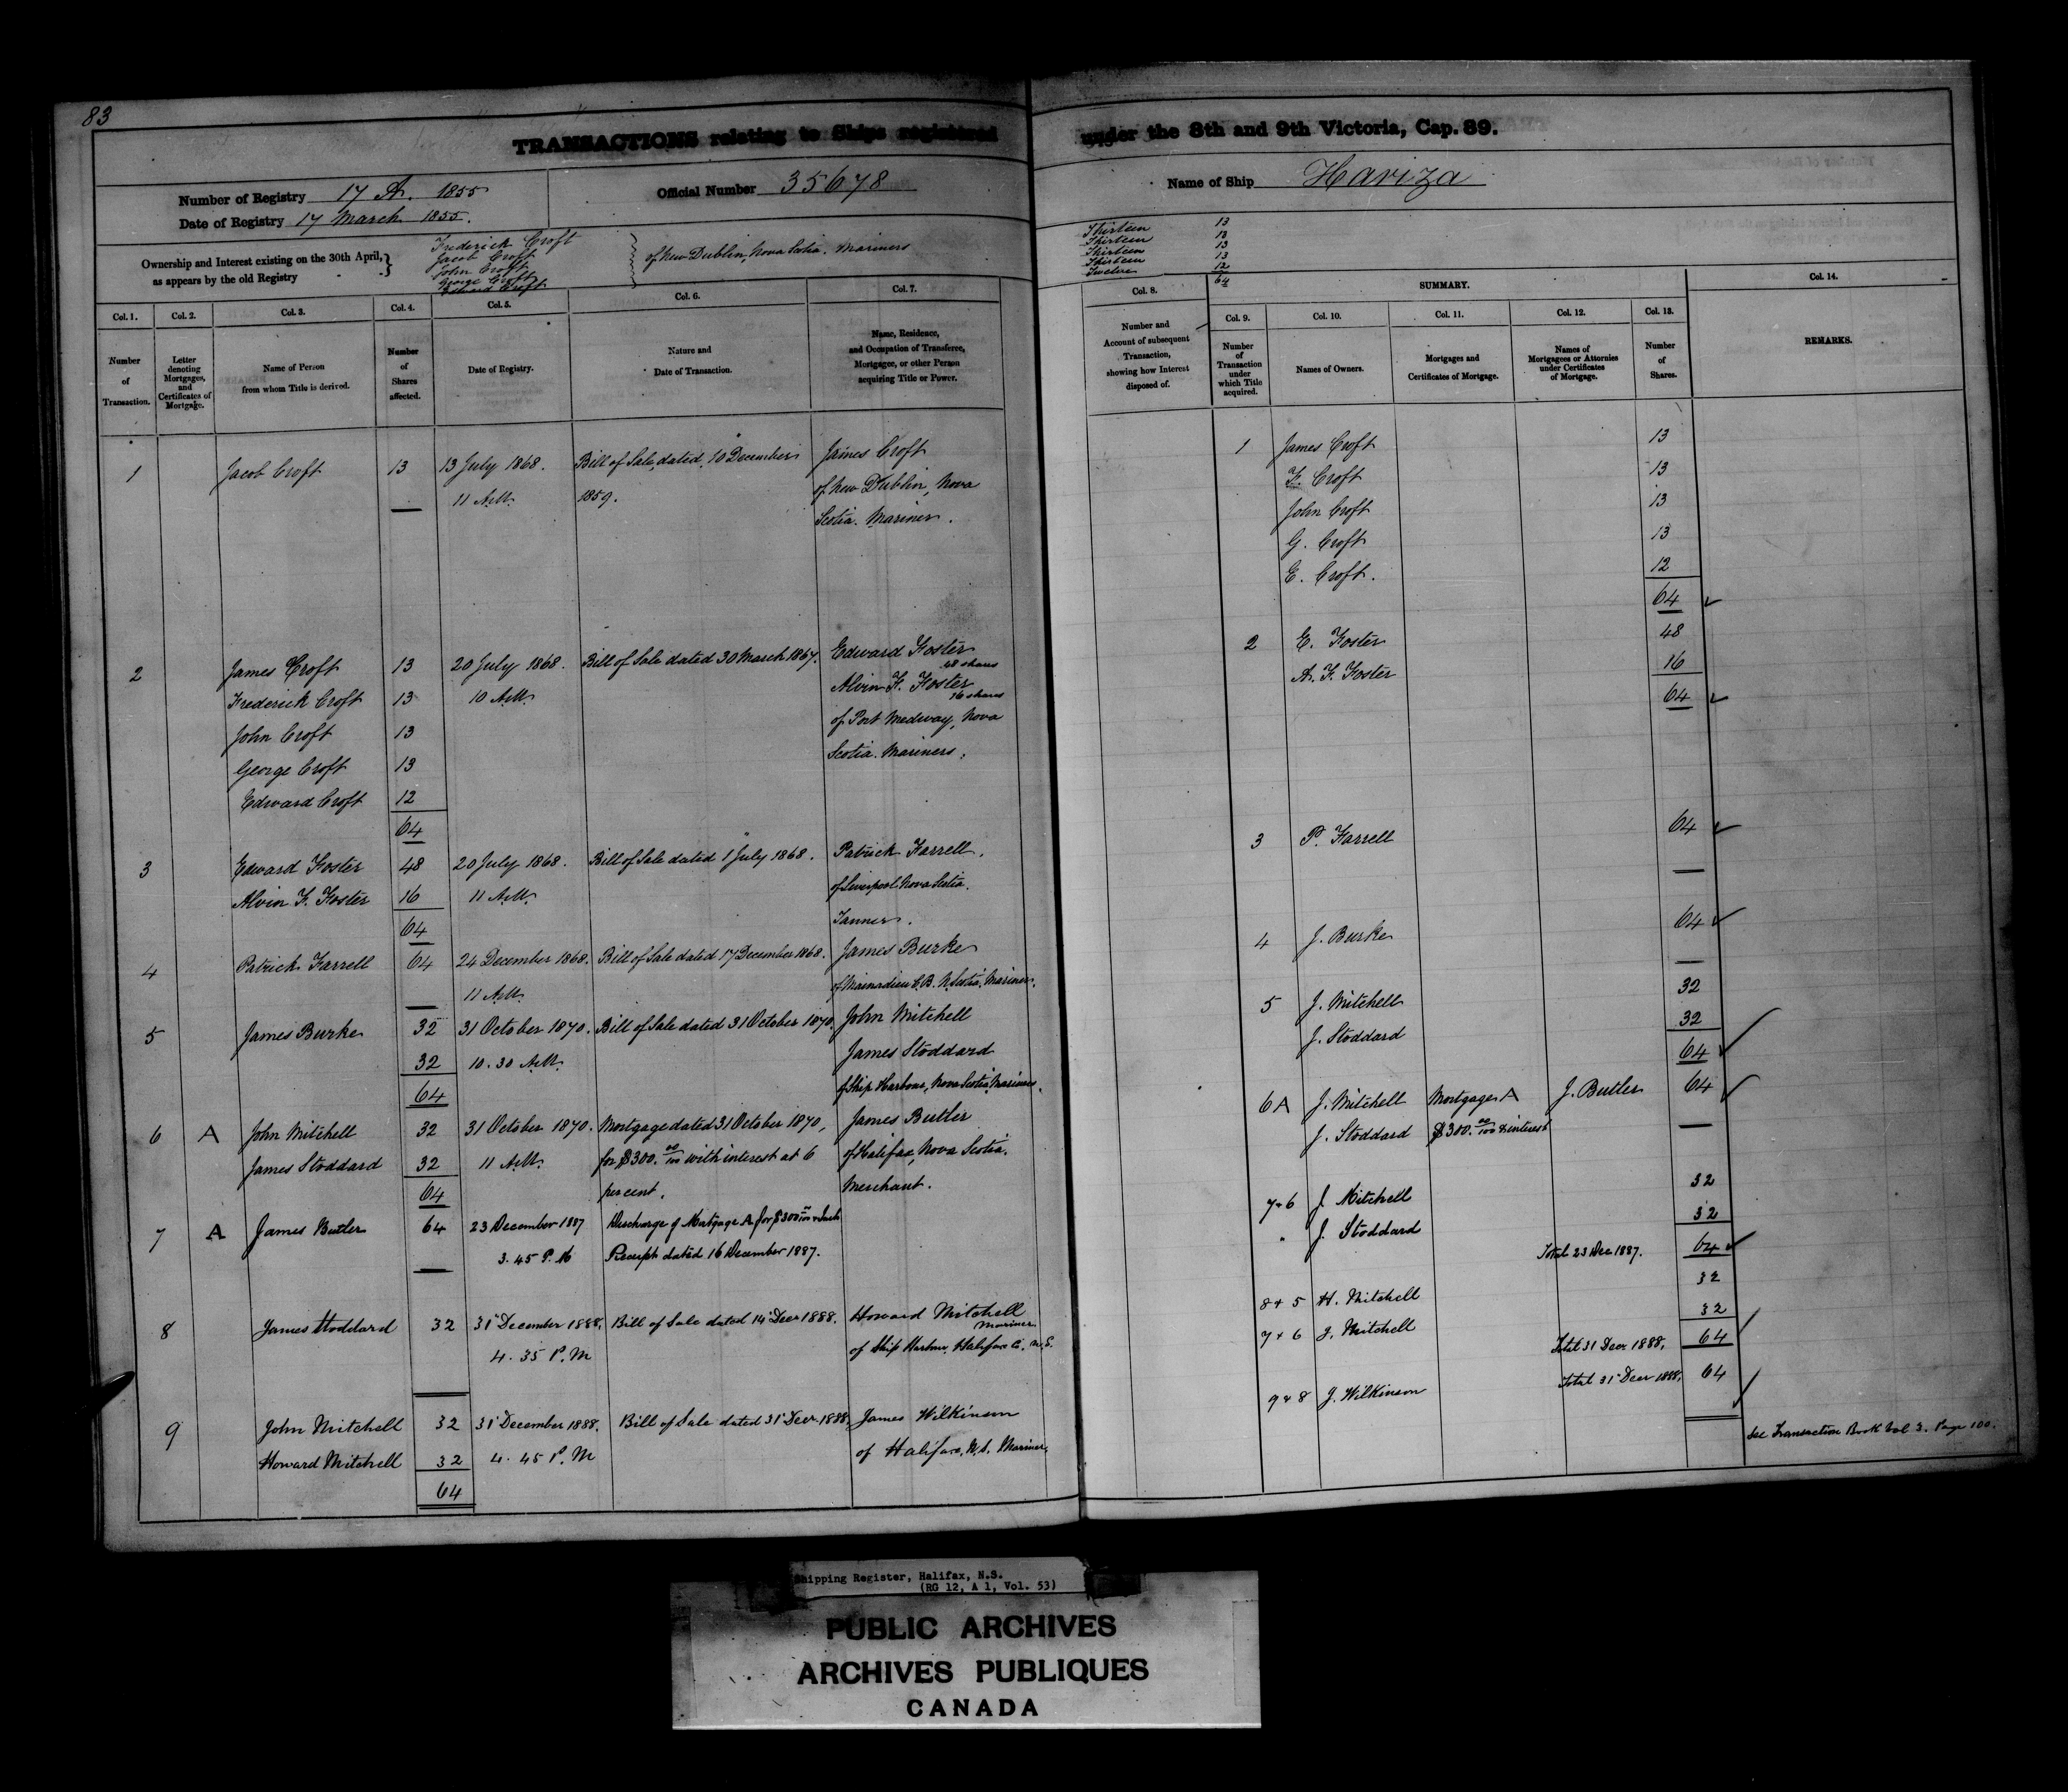 83
TRANSACTIONS relating to Ships registered under the 8th and 9th Victoria, Cap. 89.
Number of Registry 17 A. 1855
Date of Registry 17 March 1855.
Official Number 35678
Name of Ship Hariza
Ownership and Interest existing on the 30th April, as appears by the old Registry
Frederick Croft
Jacob Croft
John Croft
George Croft
Edward Croft
of New Dublin, Nova Scotia. Mariners
Thirteen 13
Thirteen 13
Thirteen 13
Thirteen 13
Twelve 12
64
Col. 1. Col. 2. Col. 3. Col. 4. Col. 5. Col. 6. Col. 7.
Number of Transaction.
Letter denoting Mortgages, and Certificates of Mortgage.
Name of Person from whom Title is derived.
Number of Shares affected.
Date of Registry.
Nature and Date of Transaction.
Name, Residence, and Occupation of Transferee, Mortgagee, or other Person acquiring Title or Power.
1 Jacob Croft 13 13 July 1868. Bill of Sale, dated 10 December James Croft
11 A.M. 1859. of New Dublin, Nova
Scotia. Mariner.
2 James Croft 13 20 July 1868. Bill of Sale dated 30 March 1867. Edward Foster
48 shares
Frederick Croft 13 10 A.M. Alvin F. Foster
16 shares
John Croft 13 of Port Medway, Nova
George Croft 13 Scotia. Mariners.
Edward Croft 12
64
3 Edward Foster 48 20 July 1868. Bill of Sale dated 1 July 1868. Patrick Farrell.
Alvin F. Foster 16 11 A.M. of Liverpool Nova Scotia.
64 Tanner.
4 Patrick Farrell 64 24 December 1868. Bill of Sale dated 17 December 1868. James Burke
11 A.M. of Mainadieu C.B. N. Scotia. Mariner.
5 James Burke 32 31 October 1870. Bill of Sale dated 31 October 1870. John Mitchell
32 10.30 A.M. James Stoddard
64 of Ship Harbour, Nova Scotia, Mariners.
6 A John Mitchell 32 31 October 1870. Mortgage dated 31 October 1870, James Butler
James Stoddard 32 11 A.M. for $300. 00/100 with interest at 6 of Halifax, Nova Scotia.
64 per cent. Merchant.
7 A James Butler 64 23 December 1887 Discharge of Mortgage A for $300 00/100
3.45 P.M Receipt dated 16 December 1887.
8 James Stoddard 32 31 December 1888. Bill of Sale dated 14 Decr 1888. Howard Mitchell
Mariner
4.35 P.M of Ship Harbour, Halifax Co. N.S.
9 John Mitchell 32 31 December 1888. Bill of Sale dated 31 Decr 1888. James Wilkinson
Howard Mitchell 32 4.45 P.M of Halifax, N.S. Mariner.
64
Col. 8. SUMMARY. Col. 14.
Col. 9. Col. 10. Col. 11. Col. 12. Col. 13.
Number and Account of subsequent Transaction, showing how Interest disposed of.
Number of Transaction under which Title acquired.
Names of Owners.
Mortgages and Certificates of Mortgage.
Names of Mortgagees or Attornies under Certificates of Mortgage.
Number of Shares.
REMARKS.
1 James Croft 13
F. Croft 13
John Croft 13
G. Croft 13
E. Croft. 12
64
2 E. Foster 48
A. F. Foster 16
64
3 P. Farrell 64
4 J. Burke 64
5 J. Mitchell 32
J. Stoddard 32
64
6A J. Mitchell Mortgage A J. Butler 64
J. Stoddard $300. 00/100 & interest
7 & 6 J. Mitchell 32
" J. Stoddard 32
Total 23 Dec 1887. 64
8 & 5 H. Mitchell 32
7 & 6 J. Mitchell 32
Total 31 Decr 1888. 64
9 & 8 J. Wilkinson Total 31 Decr 1888. 64
See Transaction Book Vol 3. Page 100.
Shipping Register, Halifax, N.S.
(RG 12, A 1, Vol. 53)
PUBLIC ARCHIVES
ARCHIVES PUBLIQUES
CANADA